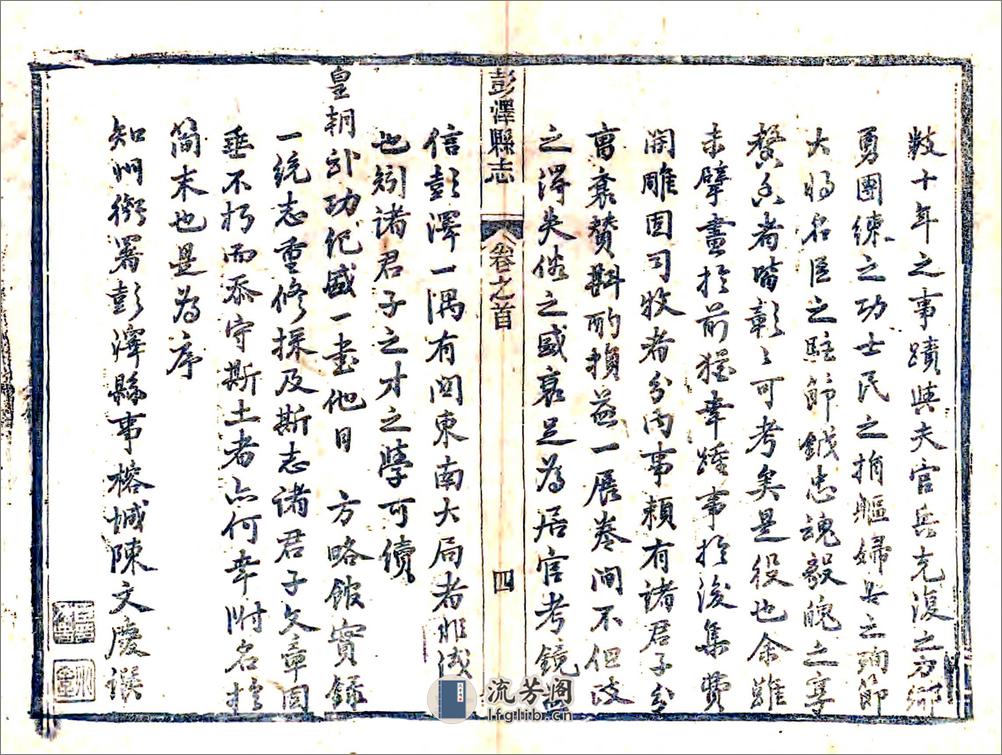 數十年之事蹟與夫官兵克復之勞鄉
勇團練之功士民之捐軀婦女之殉節
大將名臣之駐節鉞忠魂毅魄之享
馨香者皆彰彰可考矣是役也余雖
未擘畫於前猶幸踵事於後集費
開雕固司牧者分內事賴有諸君子分
曹襄贊斟酌損益一展卷間不但政
之得失俗之盛衰足為居官考鏡
信彭澤一隅有關東南大局者非淺
也矧諸君子之才之學可續
皇朝武功紀盛一書他日 方略館實錄
一統志重修採及斯志諸君子文章固
垂不朽而忝守斯土者亦何幸附名於
簡末也是為序
知州銜署彭澤縣事榕城陳文慶譔
彭澤縣志
卷之首
四
流芳阁
lfglib.cn